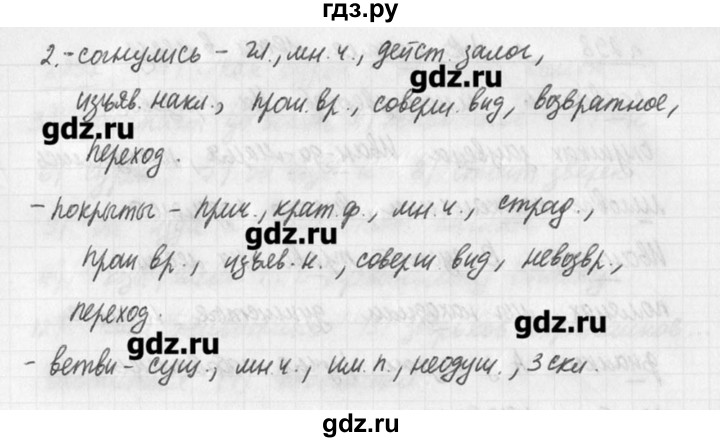 гдз.ру
2.-согнулись - гл., мн.ч., дейст. залог,
gdz.ru
изъяв. накл., прош. вр., соверш. вид, возвратное,
gdz.ru
переход.
- покрыты - прич., крат. ф., мн. ч., страд.,
gdz.ru
прош. вр., изъяв. н., соверш. вид, невозвр.,
переход.
gdz.ru
- ветви - сущ., мн. ч., им. п., неодуш., 3 скл.
gdz.ru
gdz.ru